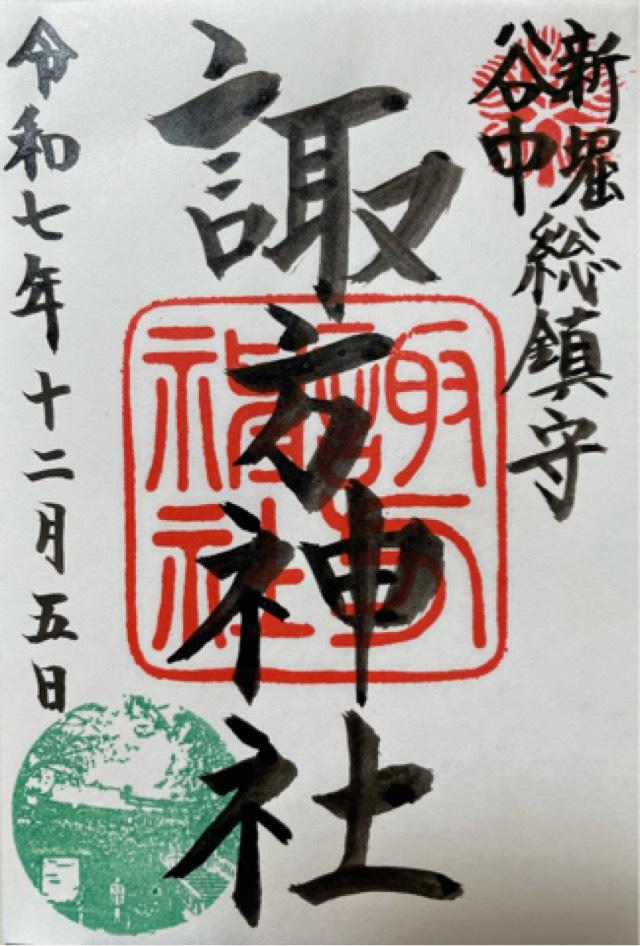 新堀
谷中
総鎮守
諏方神社
諏方
神社
令和七年十二月五日